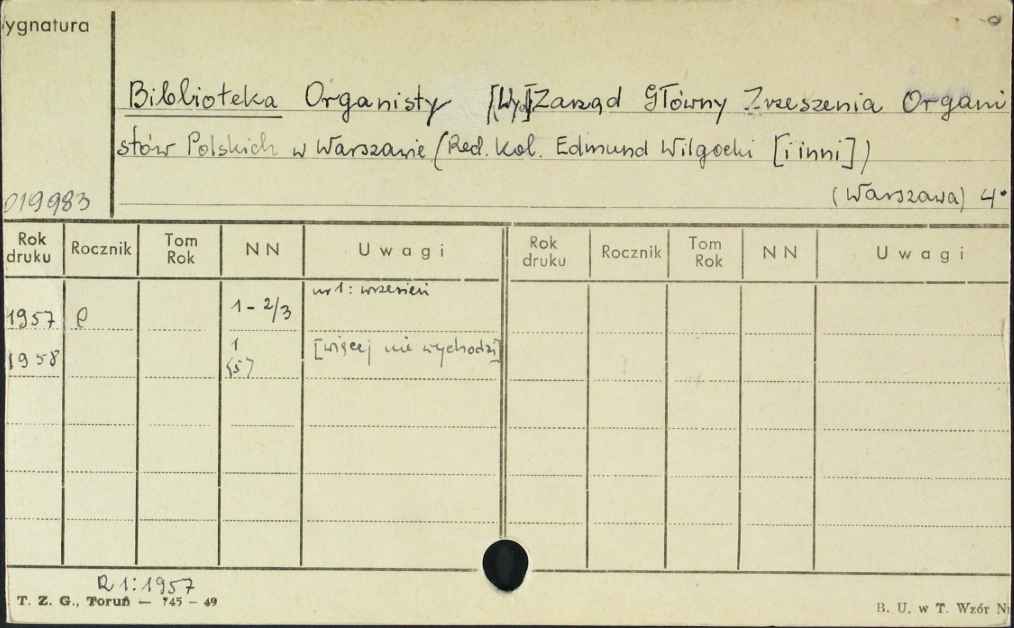 ygnatura
Biblioteka Organisty [Wyd.] Zarząd Główny Zrzeszenia Organi
stów Polskich w Warszawie (Red. kol. Edmund Wilgocki [i inni])
019983 (Warszawa) 4°
Rok druku Rocznik Tom Rok NN Uwagi Rok druku Rocznik Tom Rok NN Uwagi
1957 1-2/3 nr 1: wrzesień
1958 1 [więcej nie wychodzi]
R 1: 1957
T. Z. G., Toruń — 745 - 49
B. U. w T. Wzór N